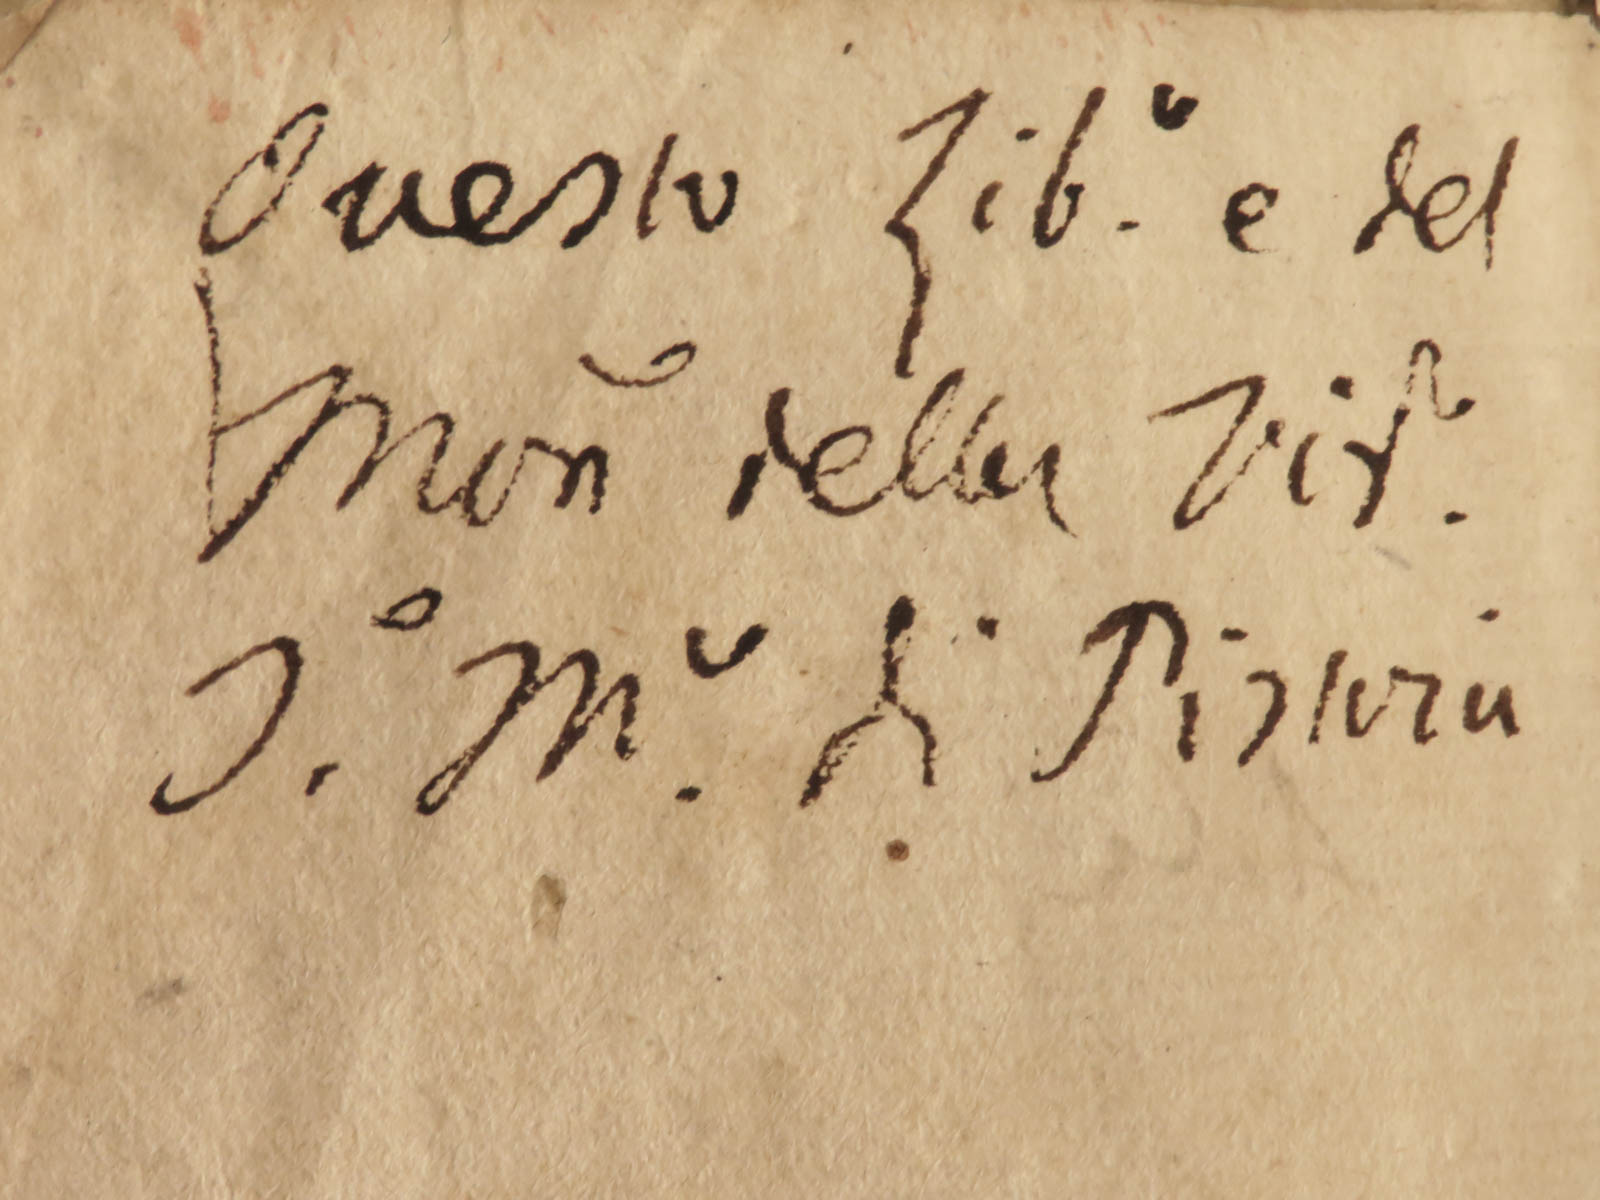 Questo Lib.o e del
Mon̄ della Vis.ne
S.a M.a di Pistoia